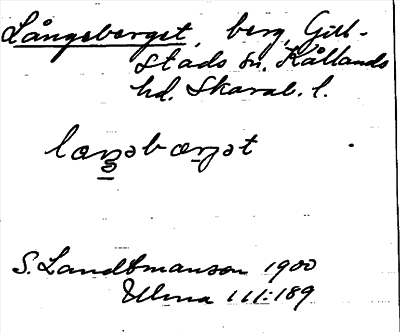 Långeberget, berg, Gill-
stads sn. Kållands
hd. Skarab. l.
læŋəbærjət
S. Landtmanson 1900
Ulma 111:189